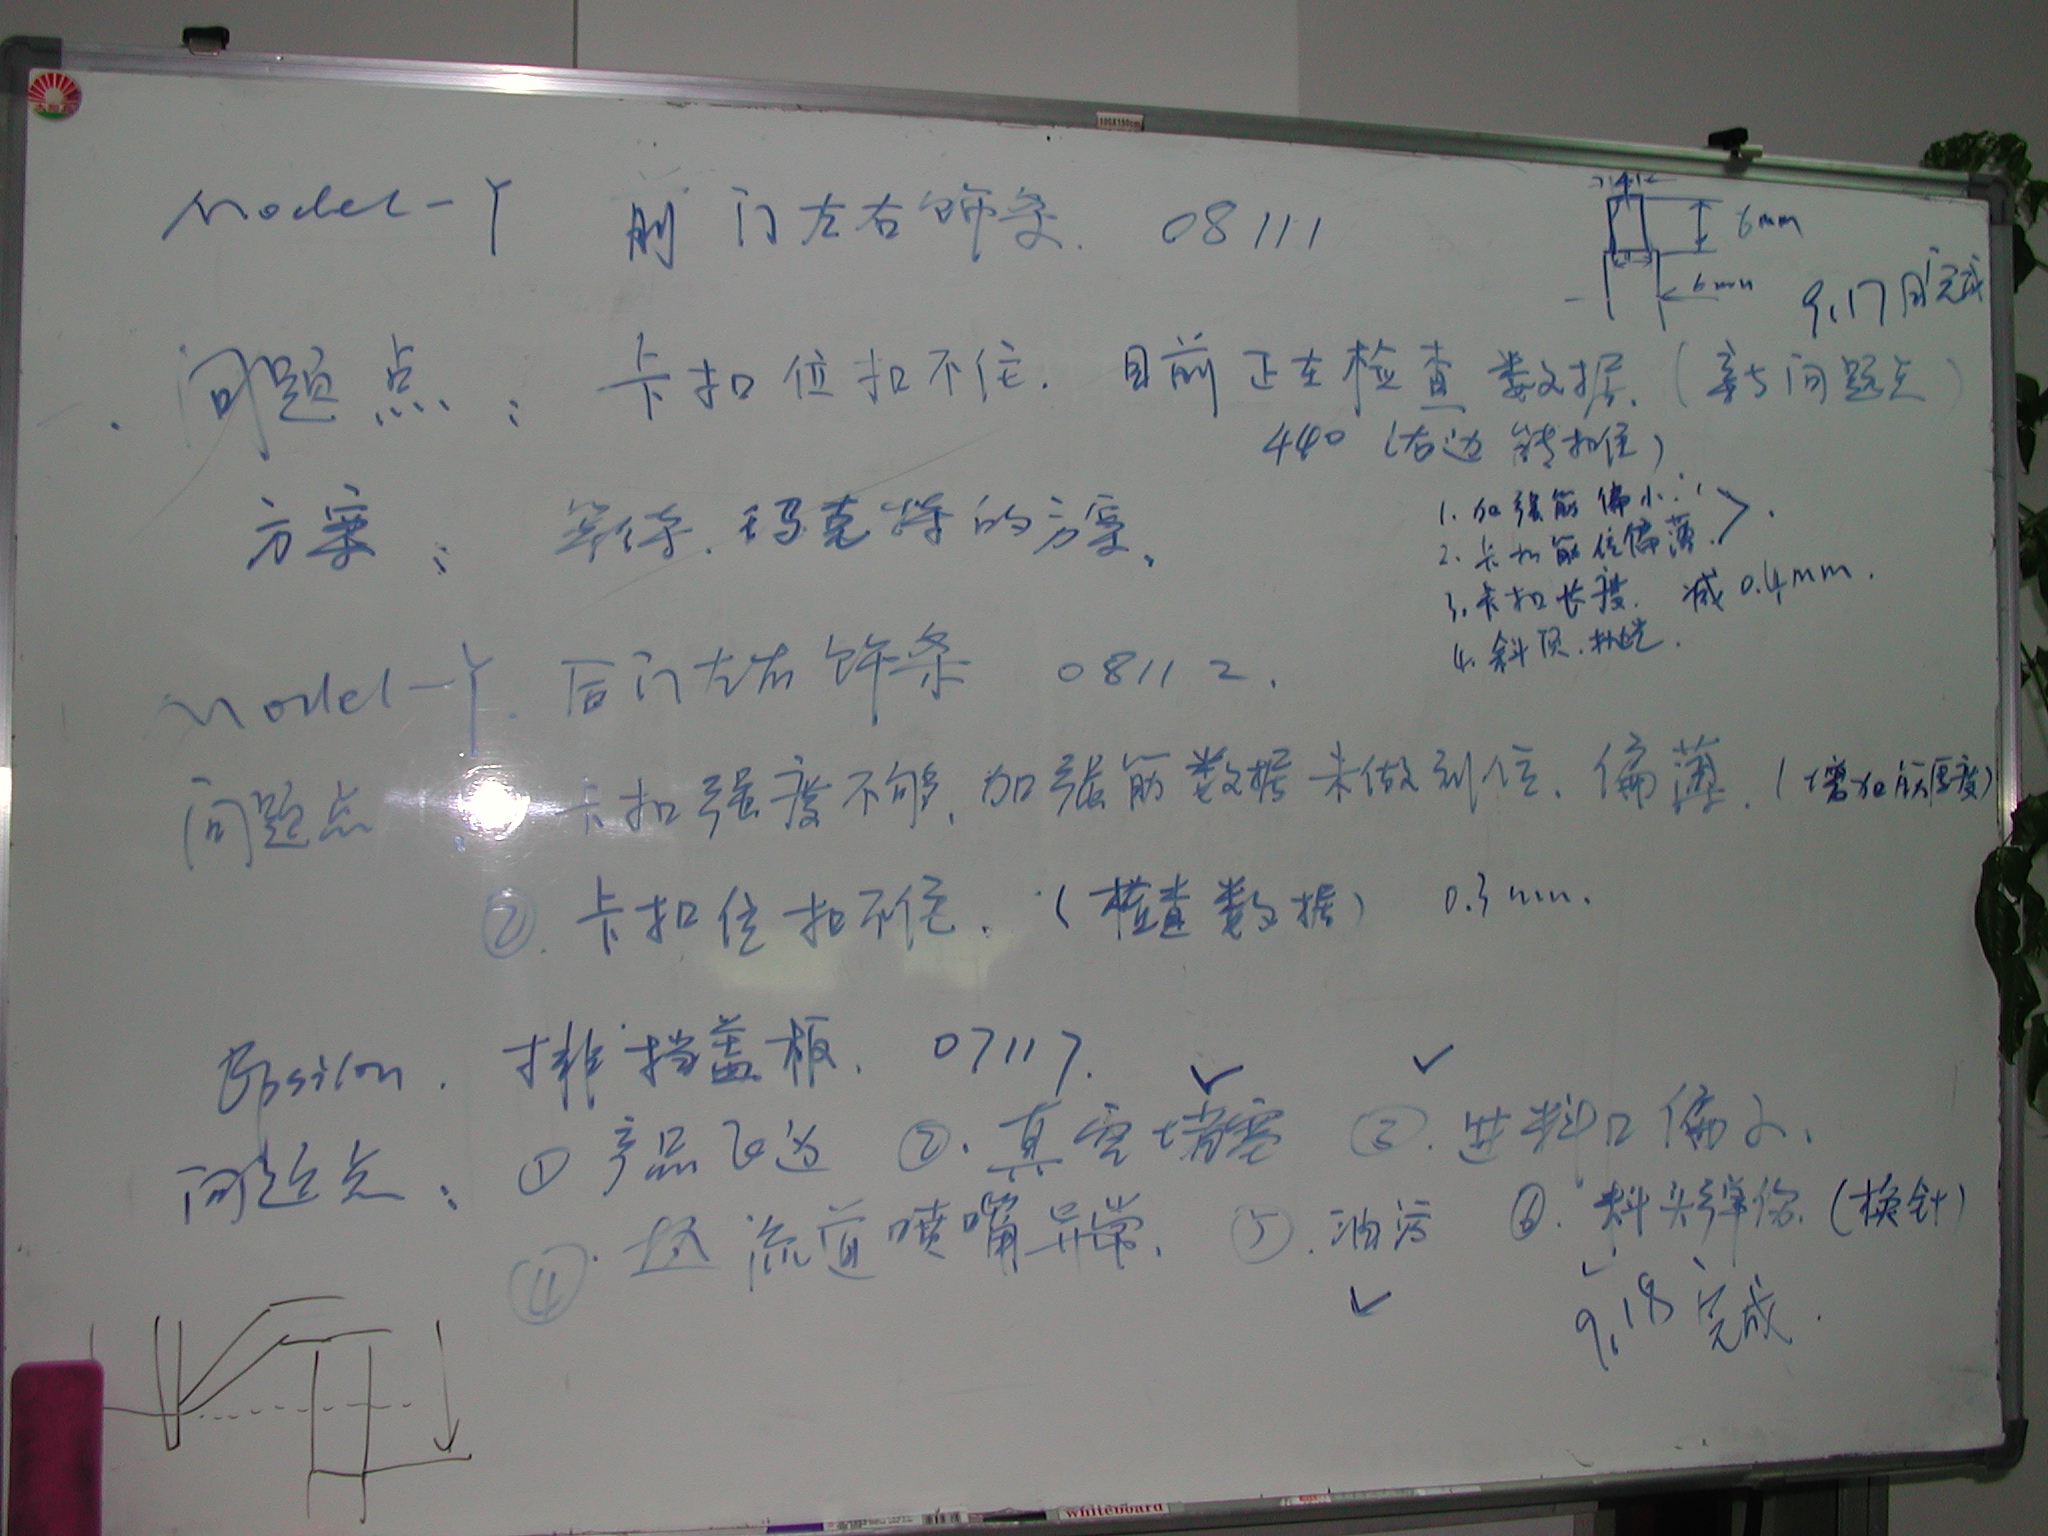 100X150cm
Model-Y 前门左右饰条. 08111
6mm
6mm
9.17日完成
问题点: 卡扣位扣不住. 目前正在检查数据. (新问题点)
440 (右边 扣位)
方案: 等待.玛克特的方案.
1. 加强筋偏小.
2. 卡扣筋位偏薄.
3. 卡扣长度. 减0.4mm.
4. 斜顶.
Model-Y. 后门左右饰条 08112.
问题点: 卡扣强度不够,加强筋数据未做到位. 偏薄. (增加筋厚度)
②. 卡扣位扣不住. (检查数据) 0.3mm.
Epsilon. 排挡盖板. 07117.
问题点: ① 产品飞边 ②. 真空堵塞 ③. 进料口偏小.
④. 热流道喷嘴异常. ⑤. 油污 ⑥. 料头弹伤 (换针)
9.18完成.
whiteboard